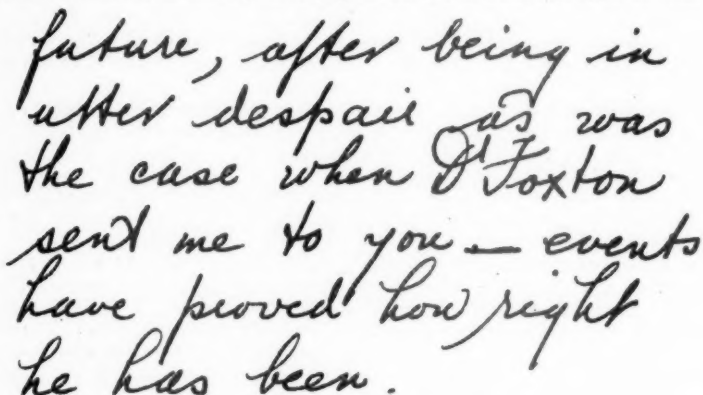 future, after being in
utter despair as was
the case when Dr Foxton
sent me to you — events
have proved how right
he has been.